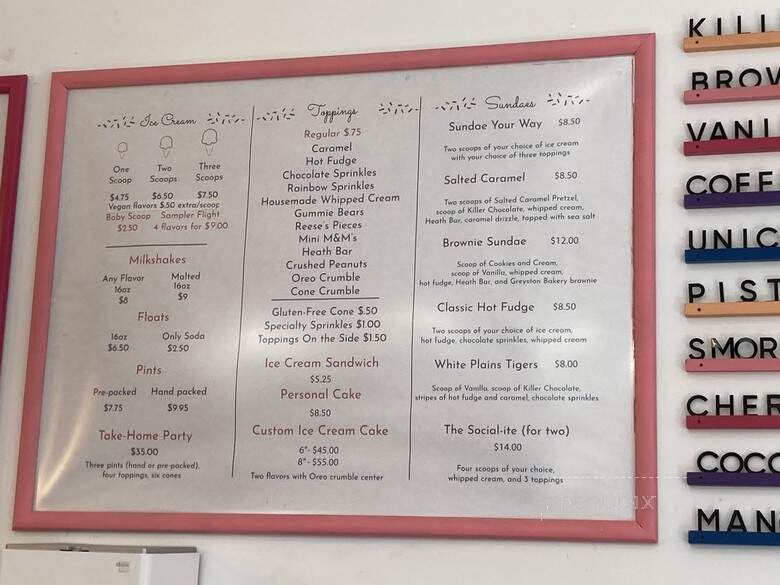 Ice Cream
One
Scoop
Two
Scoops
Three
Scoops
$4.75
$6.50
$7.50
Vegan flavors $.50 extra/scoop
Baby Scoop
$2.50
Sampler Flight
4 flavors for $9.00
Milkshakes
Any Flavor
16oz
$8
Malted
16oz
$9
Floats
16oz
$6.50
Only Soda
$2.50
Pints
Pre-packed
$7.75
Hand packed
$9.95
Take-Home Party
$35.00
Three pints (hand or pre-packed),
four toppings, six cones
Toppings
Regular $.75
Caramel
Hot Fudge
Chocolate Sprinkles
Rainbow Sprinkles
Housemade Whipped Cream
Gummie Bears
Reese's Pieces
Mini M&M's
Heath Bar
Crushed Peanuts
Oreo Crumble
Cone Crumble
Gluten-Free Cone $.50
Specialty Sprinkles $1.00
Toppings On the Side $1.50
Ice Cream Sandwich
$5.25
Personal Cake
$8.50
Custom Ice Cream Cake
6"- $45.00
8"- $55.00
Two flavors with Oreo crumble center
Sundaes
Sundae Your Way $8.50
Two scoops of your choice of ice cream
with your choice of three toppings
Salted Caramel $8.50
Two scoops of Salted Caramel Pretzel,
scoop of Killer Chocolate, whipped cream,
Heath Bar, caramel drizzle, topped with sea salt
Brownie Sundae $12.00
Scoop of Cookies and Cream,
scoop of Vanilla, whipped cream,
hot fudge, Heath Bar, and Greyston Bakery brownie
Classic Hot Fudge $8.50
Two scoops of your choice of ice cream,
hot fudge, chocolate sprinkles, whipped cream
White Plains Tigers $8.00
Scoop of Vanilla, scoop of Killer Chocolate,
stripes of hot fudge and caramel, chocolate sprinkles
The Social-ite (for two)
$14.00
Four scoops of your choice,
whipped cream, and 3 toppings
KILL
BROW
VANI
COFF
UNIC
PIST
SMOR
CHER
COCO
MAN